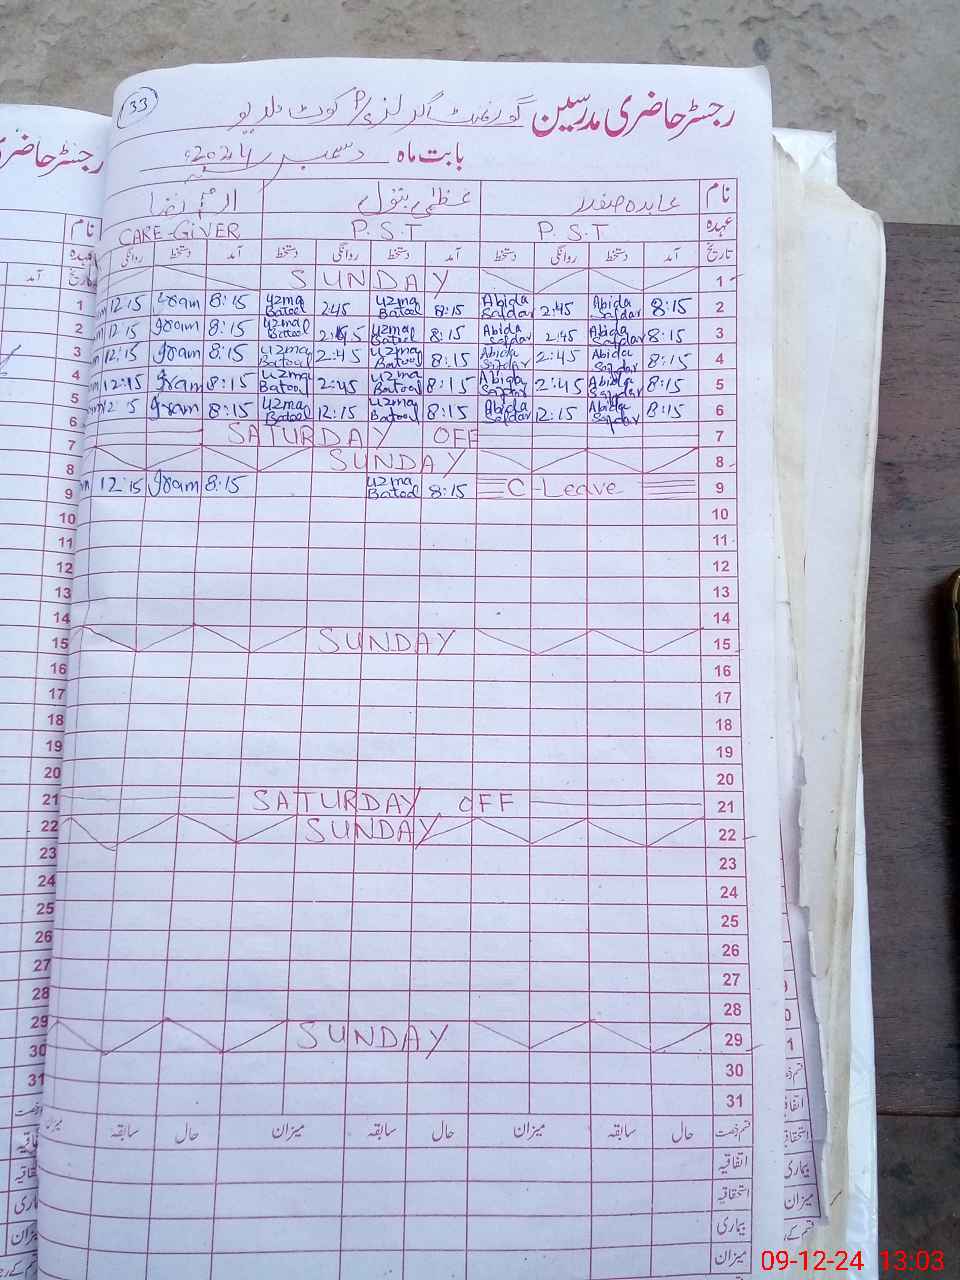 33
رجسٹر حاضری مدرسین گورنمنٹ گرلز P/S کوٹ دلدیو
بابت ماہ دسمبر 2024ء
نام عابدہ صفدر عظمیٰ بتول
عہدہ P.S.T P.S.T CARE-GIVER
تاریخ آمد دستخط روانگی دستخط آمد دستخط روانگی دستخط آمد دستخط روانگی
1 SUNDAY
2 8:15 Abida Safdar 2:45 Abida Safdar 8:15 Uzma Batool 2:45 Uzma Batool 8:15 Iram 12:15
3 8:15 Abida Safdar 2:45 Abida Safdar 8:15 Uzma Batool 2:45 Uzma Batool 8:15 Iram 12:15
4 8:15 Abida Safdar 2:45 Abida Safdar 8:15 Uzma Batool 2:45 Uzma Batool 8:15 Iram 12:15
5 8:15 Abida Safdar 2:45 Abida Safdar 8:15 Uzma Batool 2:45 Uzma Batool 8:15 Iram 12:15
6 8:15 Abida Safdar 12:15 Abida Safdar 8:15 Uzma Batool 12:15 Uzma Batool 8:15 Iram
7 SATURDAY OFF
8 SUNDAY
9 C-Leave 8:15 Uzma Batool 8:15 Iram 12:15
10
11
12
13
14
15 SUNDAY
16
17
18
19
20
21 SATURDAY OFF
22 SUNDAY
23
24
25
26
27
28
29 SUNDAY
30
31
قسم رخصت حال سابقہ میزان حال سابقہ میزان حال سابقہ میزان
اتفاقیہ
استحقاقیہ
بیماری
میزان
09-12-24 13:03